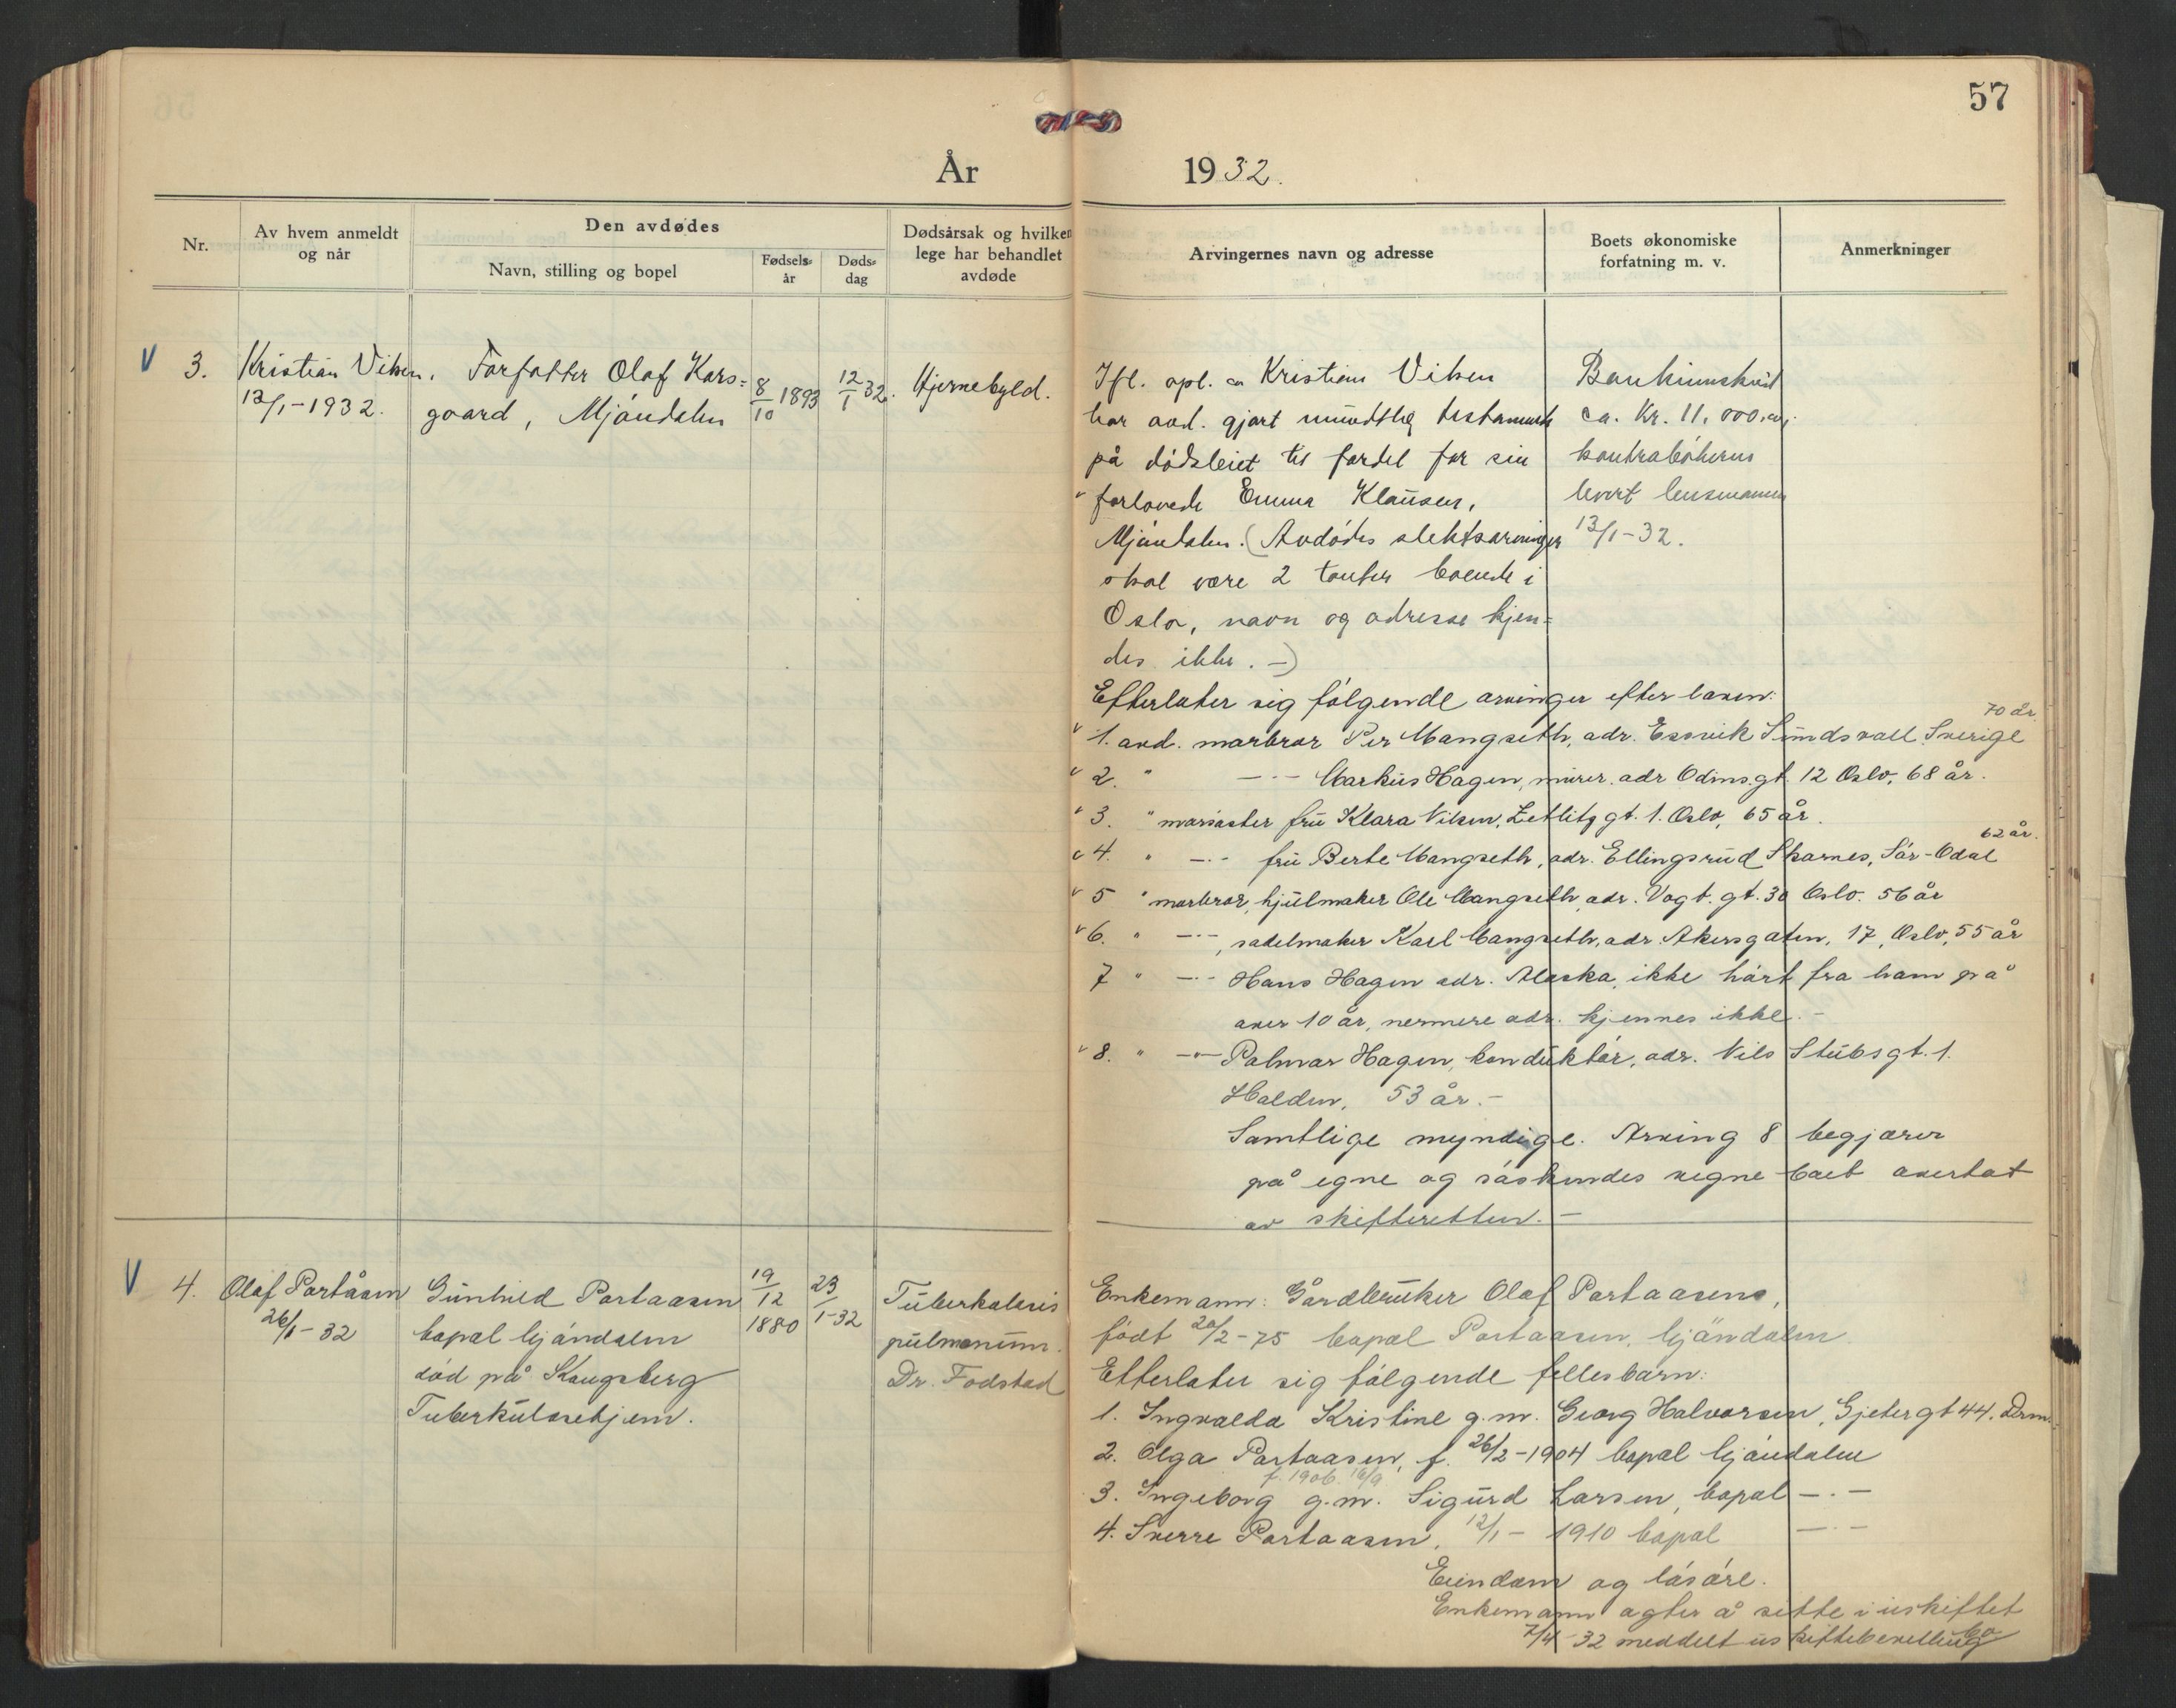 57
År 1932.
Nr.
Av hvem anmeldt
og når
Den avdødes
Navn, stilling og bopel
Fødsels-
år
Døds-
dag
Dødsårsak og hvilken
lege har behandlet
avdøde
Arvingernes navn og adresse
Boets økonomiske
forfatning m. v.
Anmerkninger
V 3.
Kristian Viken,
12/1-1932.
Forfatter Olaf Kors=
gaard, Mjöndalen
8/10 1893
12/1 32.
Hjernebyld.
Ifl. opl. av Kristian Viken
har avd. gjort mundtlig testamente
på dödsleiet til fordel for sin
v forlovede Emma Klausen,
Mjöndalen. (Avdödes slektsarvinger
skal være 2 tanter boende i
Oslo, navn og adresse kjen=
des ikke. -)
Bankinnskudd
ca. Kr. 11.000.
kontrabökerne
levert lensmannen
13/1-32.
Efterlater sig fölgende arvinger efter loven:
v 1. avd. morbror Per Mangseth, adr. Essvik Sundsvall Sverige 70 år.
v 2. " —·— Markus Hagen, murer. adr Odins.gt. 12 Oslo, 68 år.
v 3. " morsöster fru Klara Nilsen, Zetlitz gt. 1. Oslo, 65 år.
v 4. " —·— fru Berte Mangseth, adr. Ellingsrud Skarnes, Sör-Odal 62 år.
v 5 " morbror, hjulmaker Ole Mangseth, adr. Vogt. gt. 30 Oslo. 56 år
v 6. " —·—, sadelmaker Karl Mangseth, adr. Akersgaten, 17, Oslo, 55 år
7 " —·— Hans Hagen adr. Alaska, ikke hört fra ham på
over 10 år, nermere adr. kjennes ikke. -
v 8. " —"— Palmar Hagen, konduktör, adr. Nils Stubsgt. 1.
Halden, 53 år. -
Samtlige myndige. Arving 8 begjærer
på egne og söskendes vegne boet overtat
av skifteretten. -
V 4.
Olaf Portåsen
26/1-32
Gunhild Portaasen
bopæl Mjöndalen
död på Kongsberg
Tuberkulosehjem.
19/12
1880
23/1-32
Tuberkulosis
pulmonum.
Dr. Fodstad
Enkemann: Gårdbruker Olaf Portaasens,
födt 20/2-75 bopæl Portaasen, Mjöndalen.
Efterlater sig fölgende fellesbarn:
1. Ingvalda Kristine g.m. Georg Halvorsen, Gjetergt 44. Drm.
2. Olga Portaasen, f. 26/2-1904 bopæl Mjöndalen
f. 1906. 16/9
3. Ingeborg g.m. Sigurd Larsen, bopæl —·—
4. Sverre Portaasen, 12/1- 1910 bopæl —·—
Eiendom og lösöre.
Enkemann agter å sitte i uskiftet bo
7/4-32 meddelt uskiftebevilling